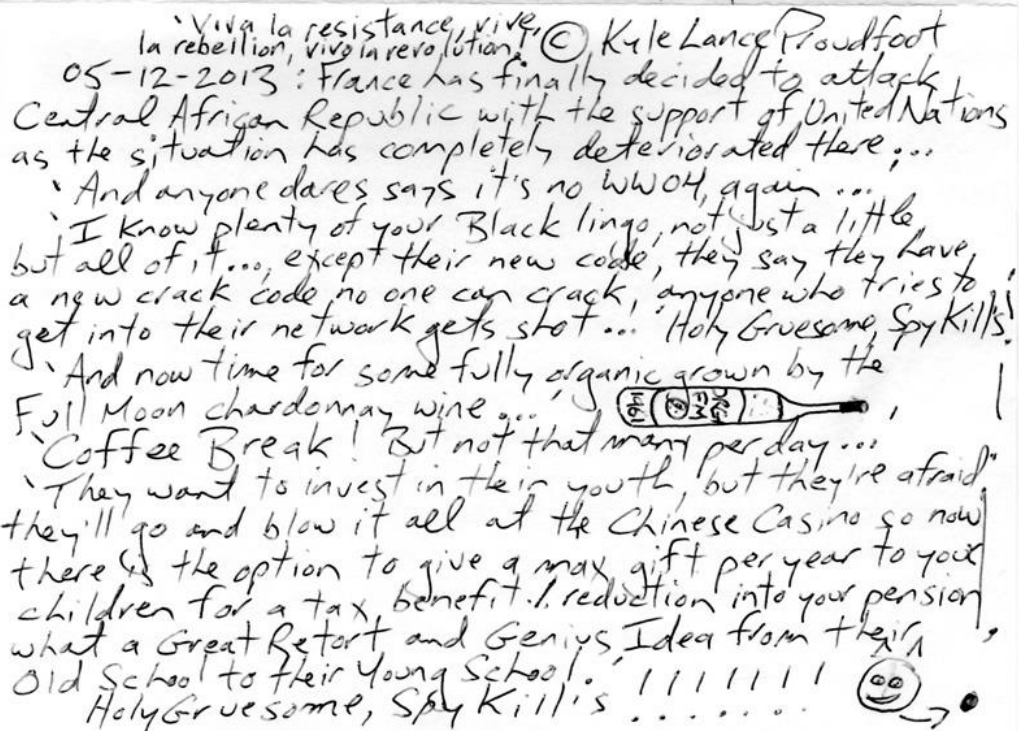 'Viva la resistance, vive,
la rebellion, vivo la revolution! © Kyle Lance Proudfoot
05-12-2013: France has finally decided to attack
Central African Republic with the support of United Nations
as the situation has completely deteriorated there...
'And anyone dares says it's no WWO4, again...
'I know plenty of your Black lingo, not just a little,
but all of it..., except their new code, they say they have
a new crack code no one can crack, anyone who tries to
get into their network gets shot...' 'Holy Gruesome, Spy Kill's!'
'And now time for some fully organic grown by the
Full Moon chardonnay wine...' 1461
'Coffee Break! But not that many per day...
'They want to invest in their youth, but they're afraid
they'll go and blow it all at the Chinese Casino so now
there is the option to give a max gift per year to your
children for a tax benefit / reduction into your pension,
what a Great Retort and Genius Idea from their
Old School to their Young School.' !!!!!!!
Holy Gruesome, Spy Kill's